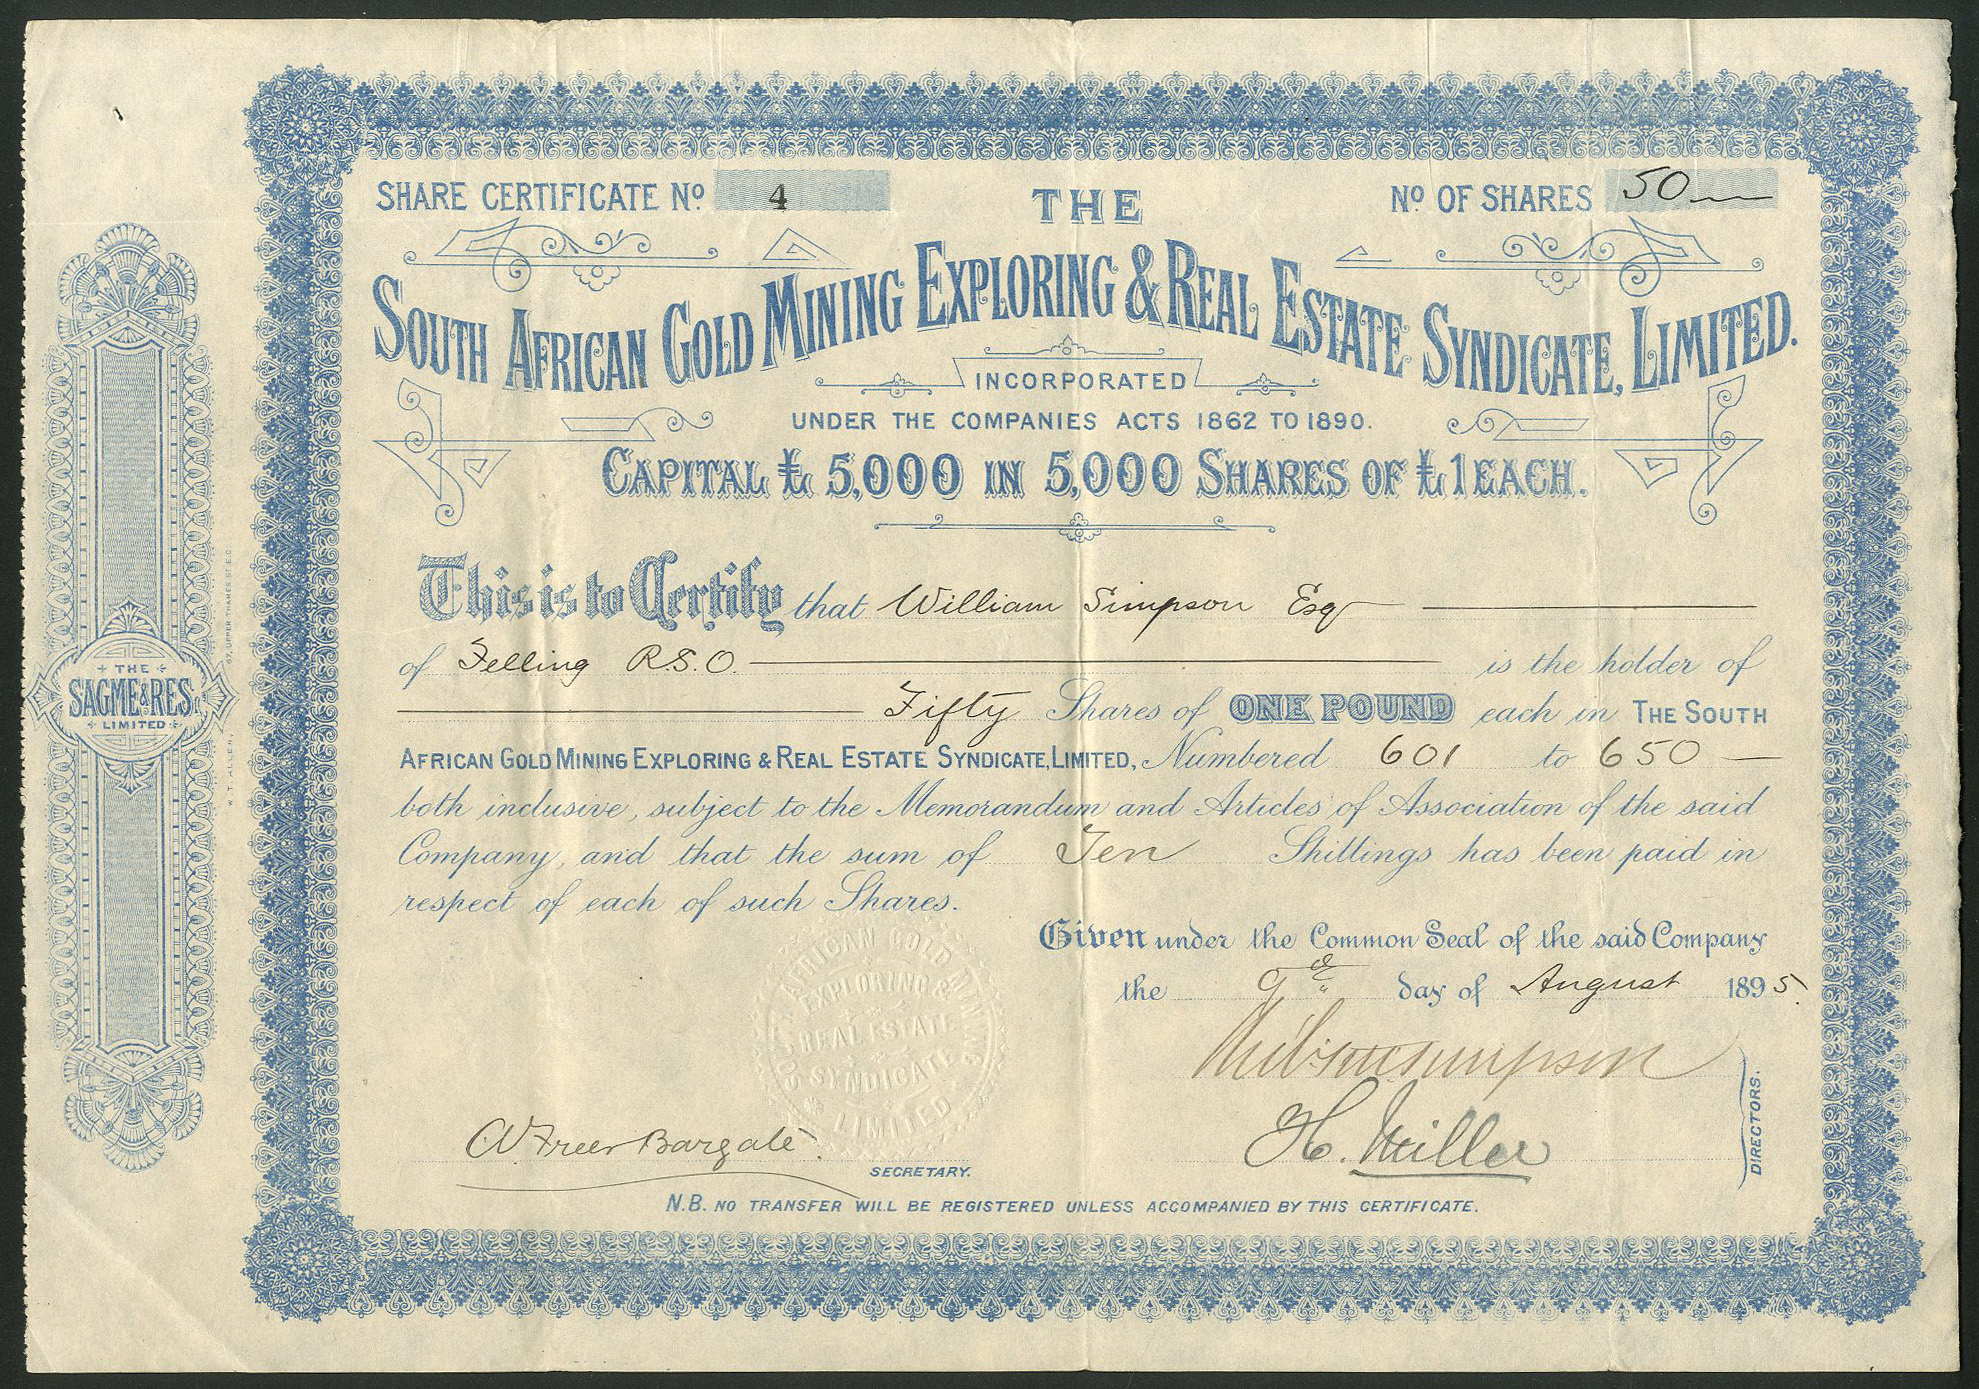 SHARE CERTIFICATE No. 4
THE
No. OF SHARES 50
SOUTH AFRICAN GOLD MINING EXPLORING & REAL ESTATE SYNDICATE, LIMITED.
INCORPORATED
UNDER THE COMPANIES ACTS 1862 TO 1890.
CAPITAL £5,000 IN 5,000 SHARES OF £1 EACH.
This is to Certify that William Simpson Esq
of Felling R.S.O. is the holder of
Fifty Shares of ONE POUND each in THE SOUTH
AFRICAN GOLD MINING EXPLORING & REAL ESTATE SYNDICATE, LIMITED, Numbered 601 to 650
both inclusive, subject to the Memorandum and Articles of Association of the said
Company, and that the sum of Ten Shillings has been paid in
respect of each of such Shares.
Given under the Common Seal of the said Company
the 9th day of August 1895.
Simpson
H. Miller
DIRECTORS.
SOUTH AFRICAN GOLD MINING
EXPLORING &
REAL ESTATE
SYNDICATE
LIMITED
W. Freer Bargate.
SECRETARY.
N.B. NO TRANSFER WILL BE REGISTERED UNLESS ACCOMPANIED BY THIS CERTIFICATE.
THE
SAGME&RES
LIMITED
W. T. ALLEN, 67, UPPER THAMES ST. E.C.